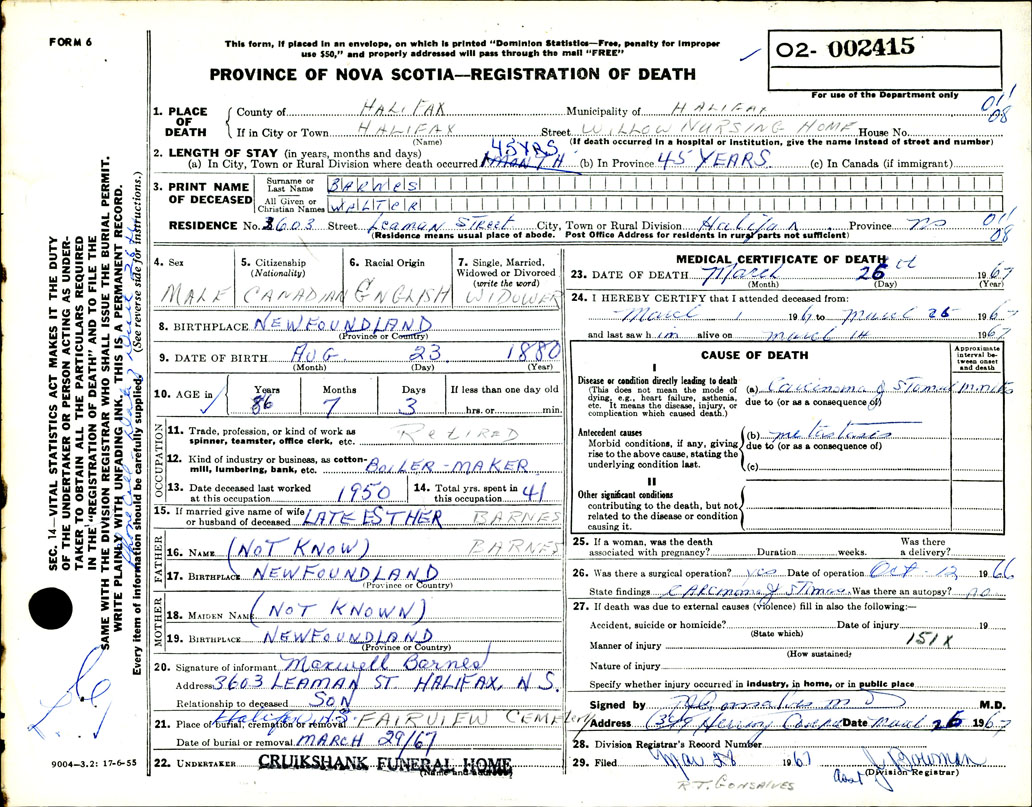 FORM 6
This form, if placed in an envelope, on which is printed "Dominion Statistics—Free, penalty for improper
use $50," and properly addressed will pass through the mail "FREE"
O2- 002415
PROVINCE OF NOVA SCOTIA—REGISTRATION OF DEATH
For use of the Department only
1. PLACE OF DEATH
County of HALIFAX Municipality of HALIFAX
If in City or Town HALIFAX Street WILLOW NURSING HOME House No.
(Name) (If death occurred in a hospital or institution, give the name instead of street and number)
01
08
2. LENGTH OF STAY (in years, months and days) 45 YRS
(a) In City, Town or Rural Division where death occurred (b) In Province 45 YEARS (c) In Canada (if immigrant)
3. PRINT NAME OF DECEASED
Surname or Last Name BARNES
All Given or Christian Names WALTER
RESIDENCE No. 3603 Street Leaman Street City, Town or Rural Division Halifax Province NS
(Residence means usual place of abode. Post Office Address for residents in rural parts not sufficient)
01
08
4. Sex MALE
5. Citizenship (Nationality) CANADIAN
6. Racial Origin ENGLISH
7. Single, Married, Widowed or Divorced (write the word) WIDOWER
8. BIRTHPLACE NEWFOUNDLAND
(Province or Country)
9. DATE OF BIRTH AUG 23 1880
(Month) (Day) (Year)
10. AGE in Years 86 Months 7 Days 3 If less than one day old
hrs. or min.
OCCUPATION
11. Trade, profession, or kind of work as spinner, teamster, office clerk, etc. RETIRED
12. Kind of industry or business, as cotton-mill, lumbering, bank, etc. BOILER-MAKER
13. Date deceased last worked at this occupation 1950
14. Total yrs. spent in this occupation 41
15. If married give name of wife or husband of deceased LATE ESTHER BARNES
FATHER
16. NAME (NOT KNOW) BARNES
17. BIRTHPLACE NEWFOUNDLAND
(Province or Country)
MOTHER
18. MAIDEN NAME (NOT KNOWN)
19. BIRTHPLACE NEWFOUNDLAND
(Province or Country)
20. Signature of informant Maxwell Barnes
Address 3603 LEAMAN ST HALIFAX, N S.
Relationship to deceased SON
21. Place of burial, cremation or removal Halifax NS FAIRVIEW CEMETERY
Date of burial or removal MARCH 29/67
22. UNDERTAKER CRUIKSHANK FUNERAL HOME
(Name and address)
MEDICAL CERTIFICATE OF DEATH
23. DATE OF DEATH March 26th 1967
(Month) (Day) (Year)
24. I HEREBY CERTIFY that I attended deceased from:
March 1 196 to March 26 1967
and last saw him alive on March 14 1967
CAUSE OF DEATH
Approximate interval between onset and death
I
Disease or condition directly leading to death
(This does not mean the mode of dying, e.g., heart failure, asthenia, etc. It means the disease, injury, or complication which caused death.)
(a) Carcinoma of Stomach
due to (or as a consequence of)
Antecedent causes
Morbid conditions, if any, giving rise to the above cause, stating the underlying condition last.
(b) metastasis
due to (or as a consequence of)
(c)
II
Other significant conditions
contributing to the death, but not related to the disease or condition causing it.
25. If a woman, was the death associated with pregnancy? Duration weeks. Was there a delivery?
26. Was there a surgical operation? yes Date of operation Oct - 12 1966
State findings CARCINOMA of Was there an autopsy? no
27. If death was due to external causes (violence) fill in also the following:—
Accident, suicide or homicide? Date of injury 19
(State which)
Manner of injury 151X
(How sustained)
Nature of injury
Specify whether injury occurred in industry, in home, or in public place
Signed by M.D.
Address Date March 26 1967
28. Division Registrar's Record Number
29. Filed Mar 28 1967 J Bowman
(Division Registrar)
R.T. GONSALVES
SEC. 14—VITAL STATISTICS ACT MAKES IT THE DUTY
OF THE UNDERTAKER OR PERSON ACTING AS UNDER-
TAKER TO OBTAIN ALL THE PARTICULARS REQUIRED
IN THE "REGISTRATION OF DEATH" AND TO FILE THE
SAME WITH THE DIVISION REGISTRAR WHO SHALL ISSUE THE BURIAL PERMIT.
WRITE PLAINLY WITH UNFADING INK. THIS IS A PERMANENT RECORD.
Every item of information should be carefully supplied. (See reverse side for instructions.)
9004-3.2: 17-6-55